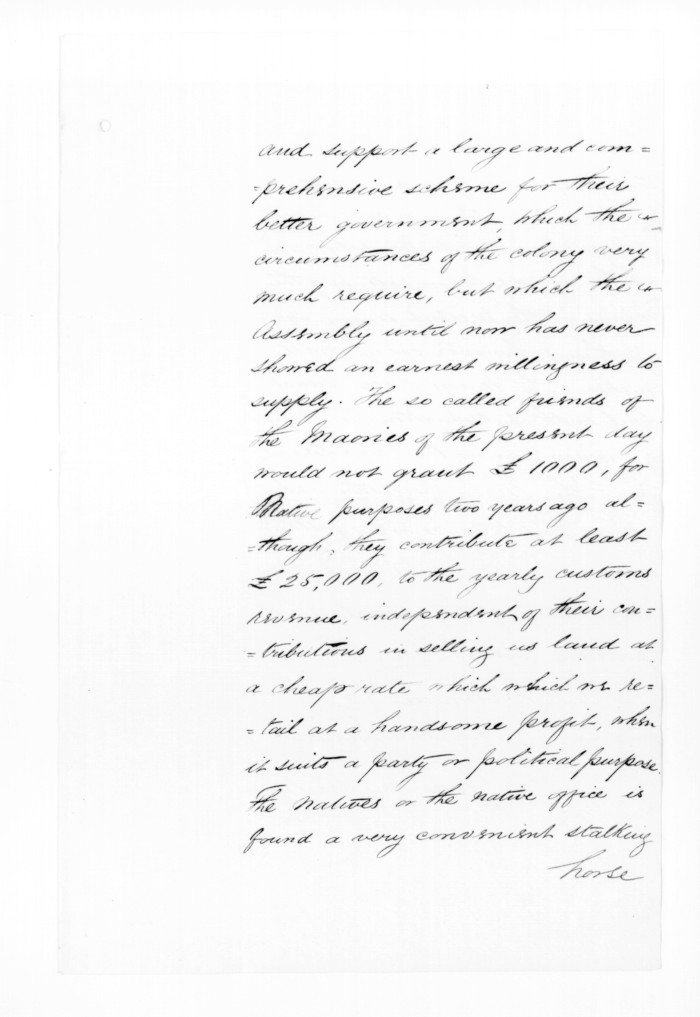 and support a large and com=
=prehensive scheme for their
better government, which the
circumstances of the colony very
much require, but which the
Assembly until now has never
showed an earnest willingness to
supply. The so called friends of
the Maories of the present day
would not grant £1000, for
Native purposes two years ago al=
=though, they contribute at least
£25,000, to the yearly customs
revenue, independent of their con=
=tributions in selling us land at
a cheap rate which which we re=
=tail at a handsome profit, when
it suits a party or political purpose.
The natives or the native office is
found a very convenient stalking
horse